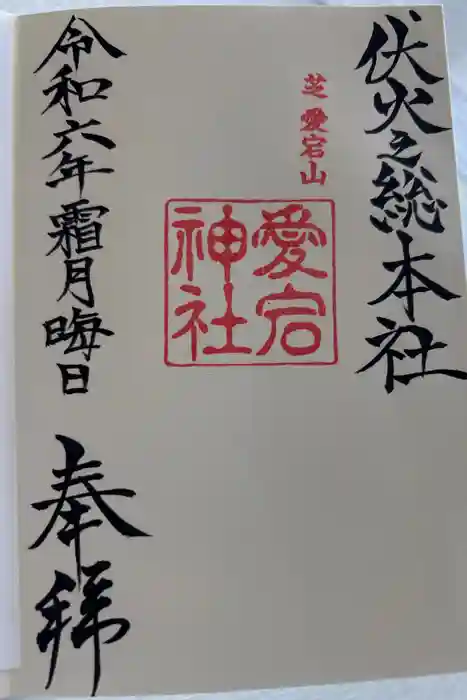 伏火之総本社
芝愛宕山
愛宕
神社
令和六年霜月晦日
奉拝